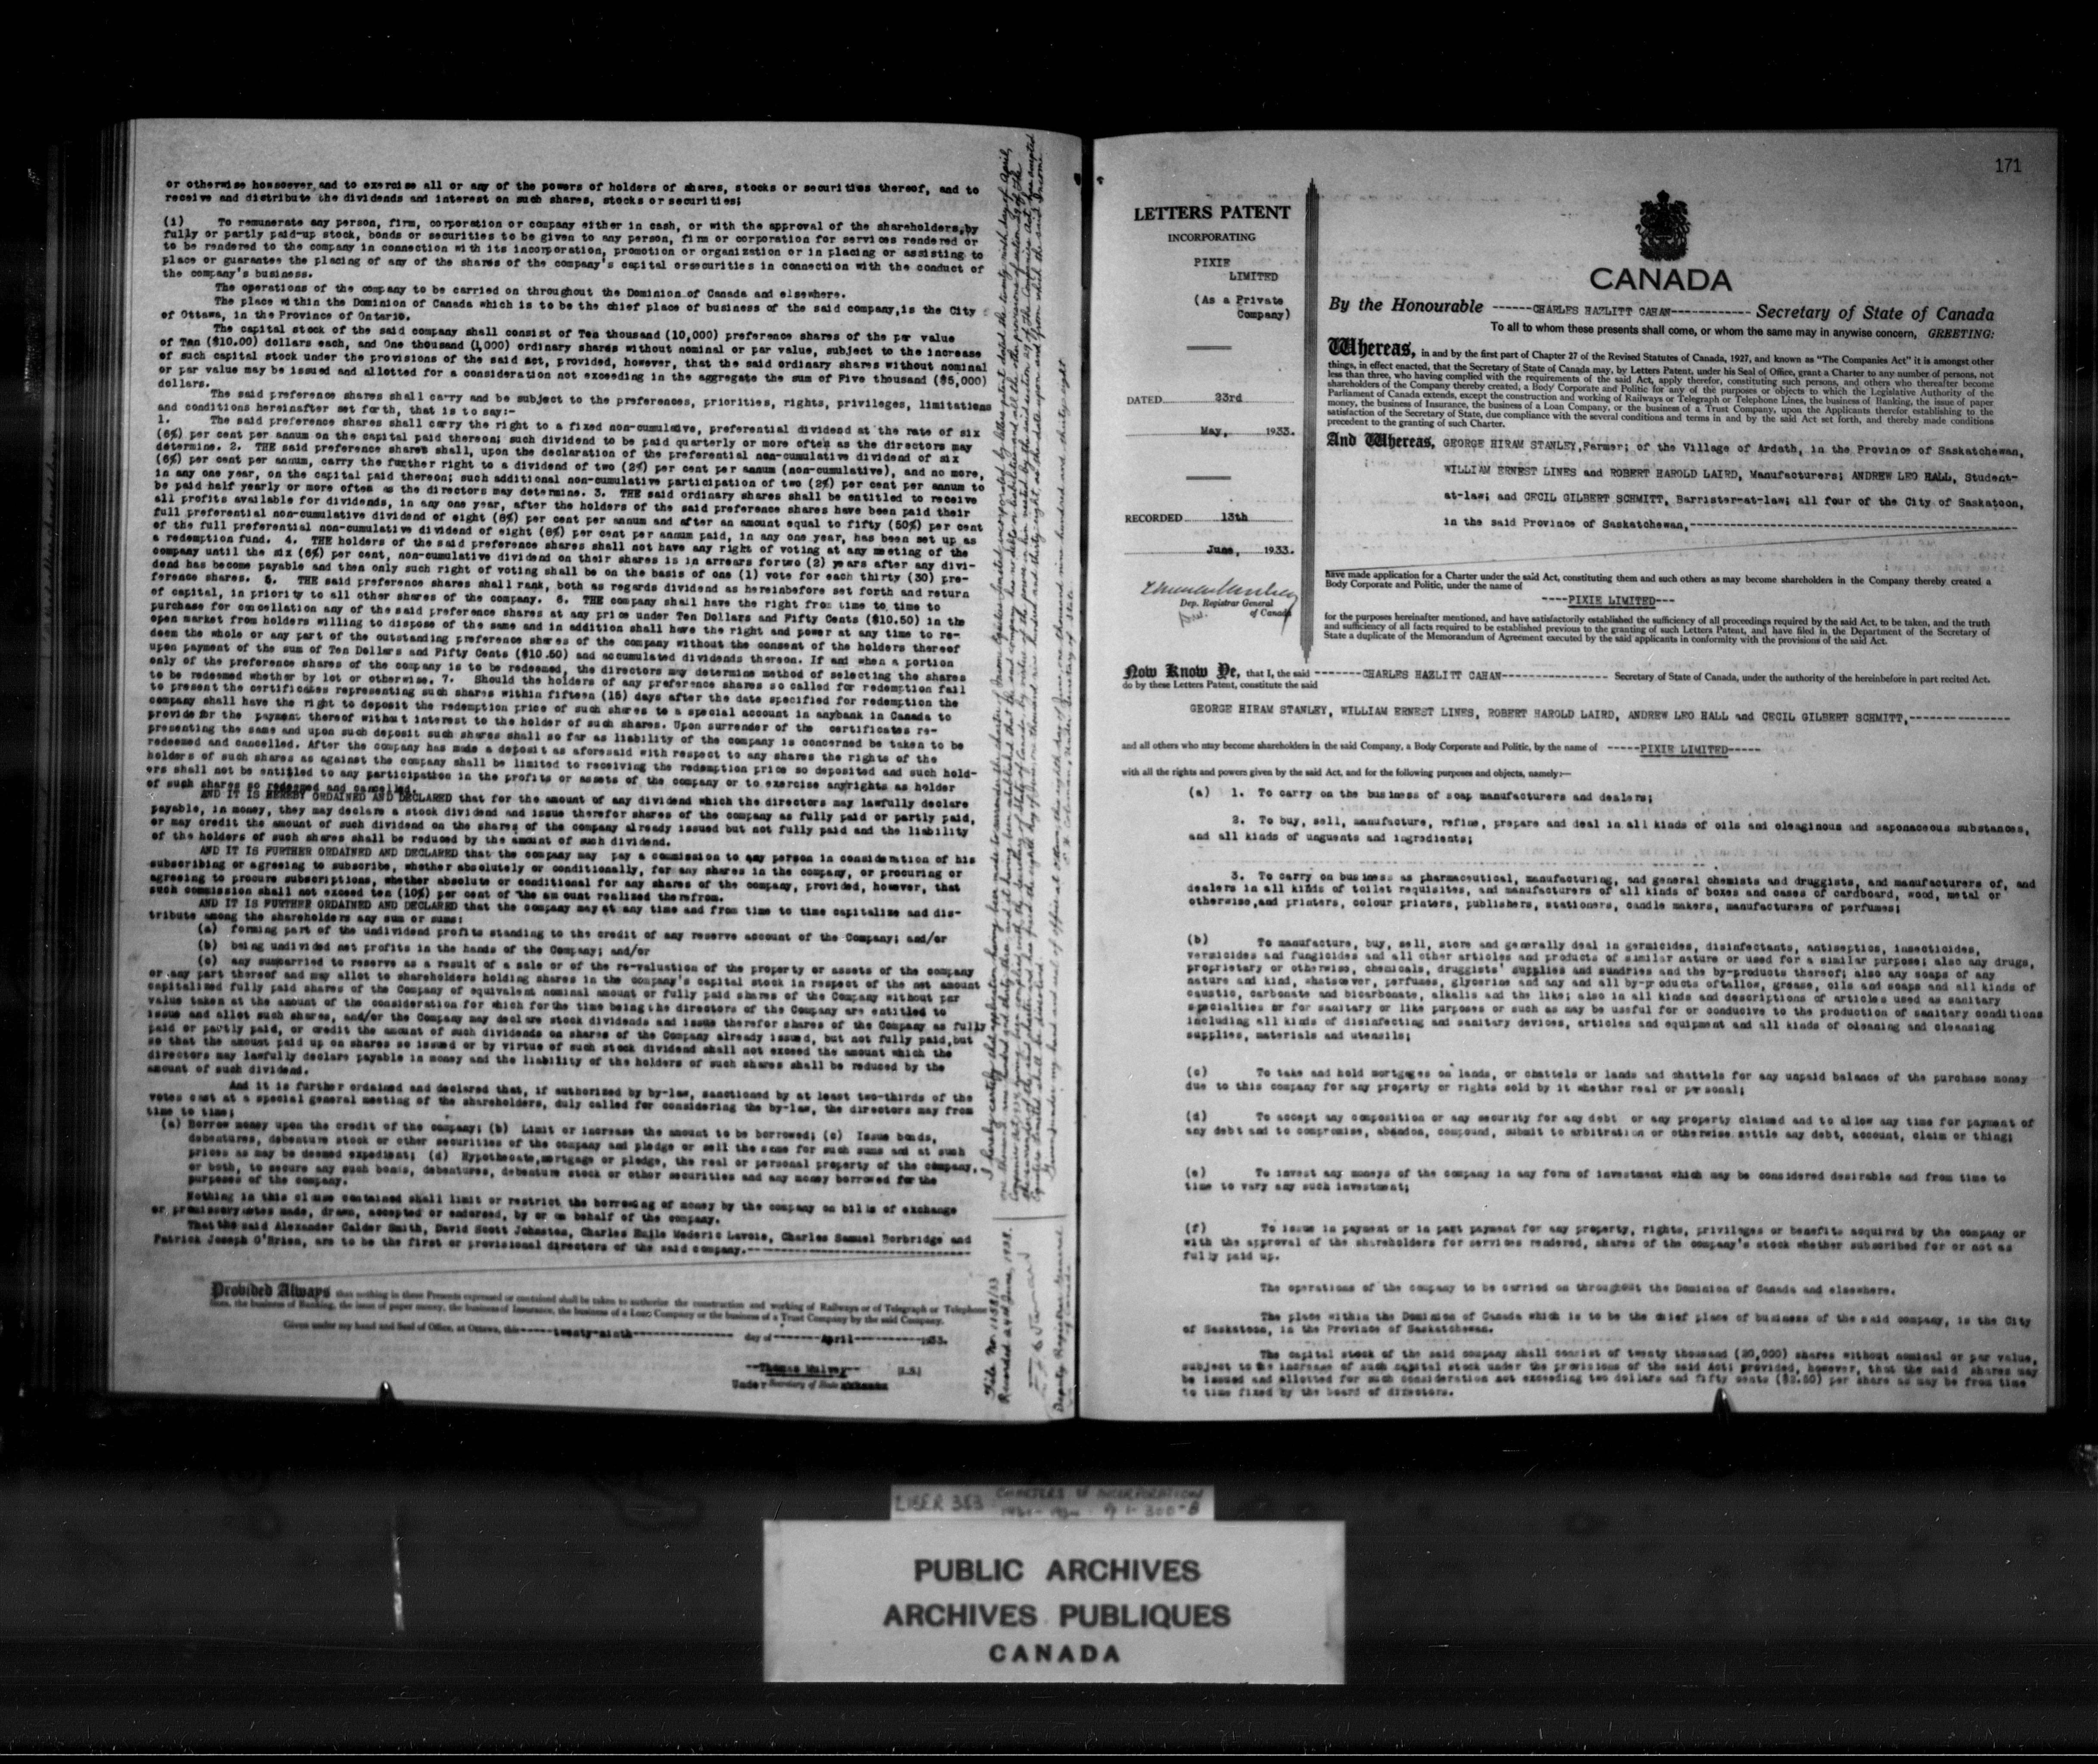 or otherwise howsoever, and to exercise all or any of the powers of holders of shares, stocks or securities thereof, and to
receive and distribute the dividends and interest on such shares, stocks or securities;
(i) To remunerate any person, firm, corporation or company either in cash, or with the approval of the shareholders, by
fully or partly paid-up stock, bonds or securities to be given to any person, firm or corporation for services rendered or
to be rendered to the company in connection with its incorporation, promotion or organization or in placing or assisting to
place or guarantee the placing of any of the shares of the company's capital orsecurities in connection with the conduct of
the company's business.
The operations of the company to be carried on throughout the Dominion of Canada and elsewhere.
The place within the Dominion of Canada which is to be the chief place of business of the said company, is the City
of Ottawa, in the Province of Ontario.
The capital stock of the said company shall consist of Ten thousand (10,000) preference shares of the par value
of Ten ($10.00) dollars each, and One thousand (1,000) ordinary shares without nominal or par value, subject to the increase
of such capital stock under the provisions of the said act, provided, however, that the said ordinary shares without nominal
or par value may be issued and allotted for a consideration not exceeding in the aggregate the sum of Five thousand ($5,000)
dollars.
The said preference shares shall carry and be subject to the preferences, priorities, rights, privileges, limitations
and conditions hereinafter set forth, that is to say:-
1. The said preference shares shall carry the right to a fixed non-cumulative, preferential dividend at the rate of six
(6%) per cent per annum on the capital paid thereon; such dividend to be paid quarterly or more often as the directors may
determine. 2. THE said preference shares shall, upon the declaration of the preferential non-cumulative dividend of six
(6%) per cent per annum, carry the further right to a dividend of two (2%) per cent per annum (non-cumulative), and no more,
in any one year, on the capital paid thereon; such additional non-cumulative participation of two (2%) per cent per annum to
be paid half yearly or more often as the directors may determine. 3. THE said ordinary shares shall be entitled to receive
all profits available for dividends, in any one year, after the holders of the said preference shares have been paid their
full preferential non-cumulative dividend of eight (8%) per cent per annum and after an amount equal to fifty (50%) per cent
of the full preferential non-cumulative dividend of eight (8%) per cent per annum paid, in any one year, has been set up as
a redemption fund. 4. THE holders of the said preference shares shall not have any right of voting at any meeting of the
company until the six (6%) per cent, non-cumulative dividend on their shares is in arrears fortwo (2) years after any divi-
dend has become payable and then only such right of voting shall be on the basis of one (1) vote for each thirty (30) pre-
ference shares. 5. THE said preference shares shall rank, both as regards dividend as hereinbefore set forth and return
of capital, in priority to all other shares of the company. 6. THE company shall have the right from time to time to
purchase for cancellation any of the said preference shares at any price under Ten Dollars and Fifty Cents ($10.50) in the
open market from holders willing to dispose of the same and in addition shall have the right and power at any time to re-
deem the whole or any part of the outstanding preference shares of the company without the consent of the holders thereof
upon payment of the sum of Ten Dollars and Fifty Cents ($10.50) and accumulated dividends thereon. If and when a portion
only of the preference shares of the company is to be redeemed, the directors may determine method of selecting the shares
to be redeemed whether by lot or otherwise. 7. Should the holders of any preference shares so called for redemption fail
to present the certificates representing such shares within fifteen (15) days after the date specified for redemption the
company shall have the right to deposit the redemption price of such shares to a special account in anybank in Canada to
provide for the payment thereof without interest to the holder of such shares. Upon surrender of the certificates re-
presenting the same and upon such deposit such shares shall so far as liability of the company is concerned be taken to be
redeemed and cancelled. After the company has made a deposit as aforesaid with respect to any shares the rights of the
holders of such shares as against the company shall be limited to receiving the redemption price so deposited and such hold-
ers shall not be entitled to any participation in the profits or assets of the company or to exercise anyrights as holder
of such shares so redeemed and cancelled.
AND IT IS HEREBY ORDAINED AND DECLARED that for the amount of any dividend which the directors may lawfully declare
payable, in money, they may declare a stock dividend and issue therefor shares of the company as fully paid or partly paid,
or may credit the amount of such dividend on the shares of the company already issued but not fully paid and the liability
of the holders of such shares shall be reduced by the amount of such dividend.
AND IT IS FURTHER ORDAINED AND DECLARED that the company may pay a commission to any person in consideration of his
subscribing or agreeing to subscribe, whether absolutely or conditionally, for any shares in the company, or procuring or
agreeing to procure subscriptions, whether absolute or conditional for any shares of the company, provided, however, that
such commission shall not exceed ten (10%) per cent of the amount realized therefrom.
AND IT IS FURTHER ORDAINED AND DECLARED that the company may at any time and from time to time capitalize and dis-
tribute among the shareholders any sum or sums:
(a) forming part of the undividend profits standing to the credit of any reserve account of the Company; and/or
(b) being undivided net profits in the hands of the Company; and/or
(c) any sumcarried to reserve as a result of a sale or of the re-valuation of the property or assets of the company
or any part thereof and may allot to shareholders holding shares in the company's capital stock in respect of the net amount
capitalized fully paid shares of the Company of equivalent nominal amount or fully paid shares of the Company without par
value taken at the amount of the consideration for which for the time being the directors of the Company are entitled to
issue and allot such shares, and/or the Company may declare stock dividends and issue therefor shares of the Company as fully
paid or partly paid, or credit the amount of such dividends on shares of the Company already issued, but not fully paid,but
so that the amount paid up on shares so issued or by virtue of such stock dividend shall not exceed the amount which the
directors may lawfully declare payable in money and the liability of the holders of such shares shall be reduced by the
amount of such dividend.
And it is further ordained and declared that, if authorized by by-law, sanctioned by at least two-thirds of the
votes cast at a special general meeting of the shareholders, duly called for considering the by-law, the directors may from
time to time;
(a) Borrow money upon the credit of the company; (b) Limit or increase the amount to be borrowed; (c) Issue bonds,
debentures, debenture stock or other securities of the company and pledge or sell the same for such sums and at such
prices as may be deemed expedient; (d) Hypothecate,mortgage or pledge, the real or personal property of the company,
or both, to secure any such bonds, debentures, debenture stock or other securities and any money borrowed for the
purposes of the company.
Nothing in this clause contained shall limit or restrict the borrowing of money by the company on bills of exchange
or promissory notes made, drawn, accepted or endorsed, by or on behalf of the company.
That the said Alexander Calder Smith, David Scott Johnston, Charles Emile Mederic Lavoie, Charles Samuel Borbridge and
Patrick Joseph O'Brien, are to be the first or provisional directors of the said company.
Provided Always that nothing in these Presents expressed or contained shall be taken to authorize the construction and working of Railways or of Telegraph or Telephone
lines, the business of Banking, the issue of paper money, the business of Insurance, the business of a Loan Company or the business of a Trust Company by the said Company.
Given under my hand and Seal of Office, at Ottawa, this twenty-ninth day of April 1933.
Thomas Mulvey (L.S.)
Under Secretary of State
171
LETTERS PATENT
INCORPORATING
PIXIE
LIMITED
(As a Private
Company)
DATED 23rd
May, 1933.
RECORDED 13th
June, 1933.
Dep. Registrar General
of Canada
CANADA
By the Honourable ------CHARLES HAZLITT CAHAN------------ Secretary of State of Canada
To all to whom these presents shall come, or whom the same may in anywise concern, GREETING:
Whereas, in and by the first part of Chapter 27 of the Revised Statutes of Canada, 1927, and known as "The Companies Act" it is amongst other
things, in effect enacted, that the Secretary of State of Canada may, by Letters Patent, under his Seal of Office, grant a Charter to any number of persons, not
less than three, who having complied with the requirements of the said Act, apply therefor, constituting such persons, and others who thereafter become
shareholders of the Company thereby created, a Body Corporate and Politic for any of the purposes or objects to which the Legislative Authority of the
Parliament of Canada extends, except the construction and working of Railways or Telegraph or Telephone Lines, the business of Banking, the issue of paper
money, the business of Insurance, the business of a Loan Company, or the business of a Trust Company, upon the Applicants therefor establishing to the
satisfaction of the Secretary of State, due compliance with the several conditions and terms in and by the said Act set forth, and thereby made conditions
precedent to the granting of such Charter.
And Whereas, GEORGE HIRAM STANLEY,Farmer; of the Village of Ardath, in the Province of Saskatchewan,
WILLIAM ERNEST LINES and ROBERT HAROLD LAIRD, Manufacturers; ANDREW LEO HALL, Student-
at-law; and CECIL GILBERT SCHMITT, Barrister-at-law; all four of the City of Saskatoon,
in the said Province of Saskatchewan,
have made application for a Charter under the said Act, constituting them and such others as may become shareholders in the Company thereby created a
Body Corporate and Politic, under the name of
----PIXIE LIMITED---
for the purposes hereinafter mentioned, and have satisfactorily established the sufficiency of all proceedings required by the said Act, to be taken, and the truth
and sufficiency of all facts required to be established previous to the granting of such Letters Patent, and have filed in the Department of the Secretary of
State a duplicate of the Memorandum of Agreement executed by the said applicants in conformity with the provisions of the said Act.
Now Know Ye, that I, the said -------CHARLES HAZLITT CAHAN-------------- Secretary of State of Canada, under the authority of the hereinbefore in part recited Act,
do by these Letters Patent, constitute the said
GEORGE HIRAM STANLEY, WILLIAM ERNEST LINES, ROBERT HAROLD LAIRD, ANDREW LEO HALL and CECIL GILBERT SCHMITT,
and all others who may become shareholders in the said Company, a Body Corporate and Politic, by the name of -----PIXIE LIMITED-----
with all the rights and powers given by the said Act, and for the following purposes and objects, namely:—
(a) 1. To carry on the business of soap manufacturers and dealers;
2. To buy, sell, manufacture, refine, prepare and deal in all kinds of oils and oleaginous and saponaceous substances,
and all kinds of unguents and ingredients;
3. To carry on business as pharmaceutical, manufacturing, and general chemists and druggists, and manufacturers of, and
dealers in all kinds of toilet requisites, and manufacturers of all kinds of boxes and cases of cardboard, wood, metal or
otherwise,and printers, colour printers, publishers, stationers, candle makers, manufacturers of perfumes;
(b) To manufacture, buy, sell, store and generally deal in germicides, disinfectants, antiseptics, insecticides,
vermicides and fungicides and all other articles and products of similar nature or used for a similar purpose; also any drugs,
proprietary or otherwise, chemicals, druggists' supplies and sundries and the by-products thereof; also any soaps of any
nature and kind, whatsoever, perfumes, glycerine and any and all by-products oftallow, grease, oils and soaps and all kinds of
caustic, carbonate and bicarbonate, alkalis and the like; also in all kinds and descriptions of articles used as sanitary
specialties or for sanitary or like purposes or such as may be useful for or conducive to the production of sanitary conditions
including all kinds of disinfecting and sanitary devices, articles and equipment and all kinds of cleaning and cleansing
supplies, materials and utensils;
(c) To take and hold mortgages on lands, or chattels or lands and chattels for any unpaid balance of the purchase money
due to this company for any property or rights sold by it whether real or personal;
(d) To accept any composition or any security for any debt or any property claimed and to allow any time for payment of
any debt and to compromise, abandon, compound, submit to arbitration or otherwise settle any debt, account, claim or thing;
(e) To invest any moneys of the company in any form of investment which may be considered desirable and from time to
time to vary any such investment;
(f) To issue in payment or in part payment for any property, rights, privileges or benefits acquired by the company or
with the approval of the shareholders for services rendered, shares of the company's stock whether subscribed for or not as
fully paid up.
The operations of the company to be carried on throughout the Dominion of Canada and elsewhere.
The place within the Dominion of Canada which is to be the chief place of business of the said company, is the City
of Saskatoon, in the Province of Saskatchewan.
The capital stock of the said company shall consist of twenty thousand (20,000) shares without nominal or par value,
subject to the increase of such capital stock under the provisions of the said Act; provided, however, that the said shares may
be issued and allotted for such consideration not exceeding two dollars and fifty cents ($2.50) per share as may be from time
to time fixed by the board of directors.
LIBER 353 CHARTERS OF INCORPORATION
PUBLIC ARCHIVES
ARCHIVES PUBLIQUES
CANADA